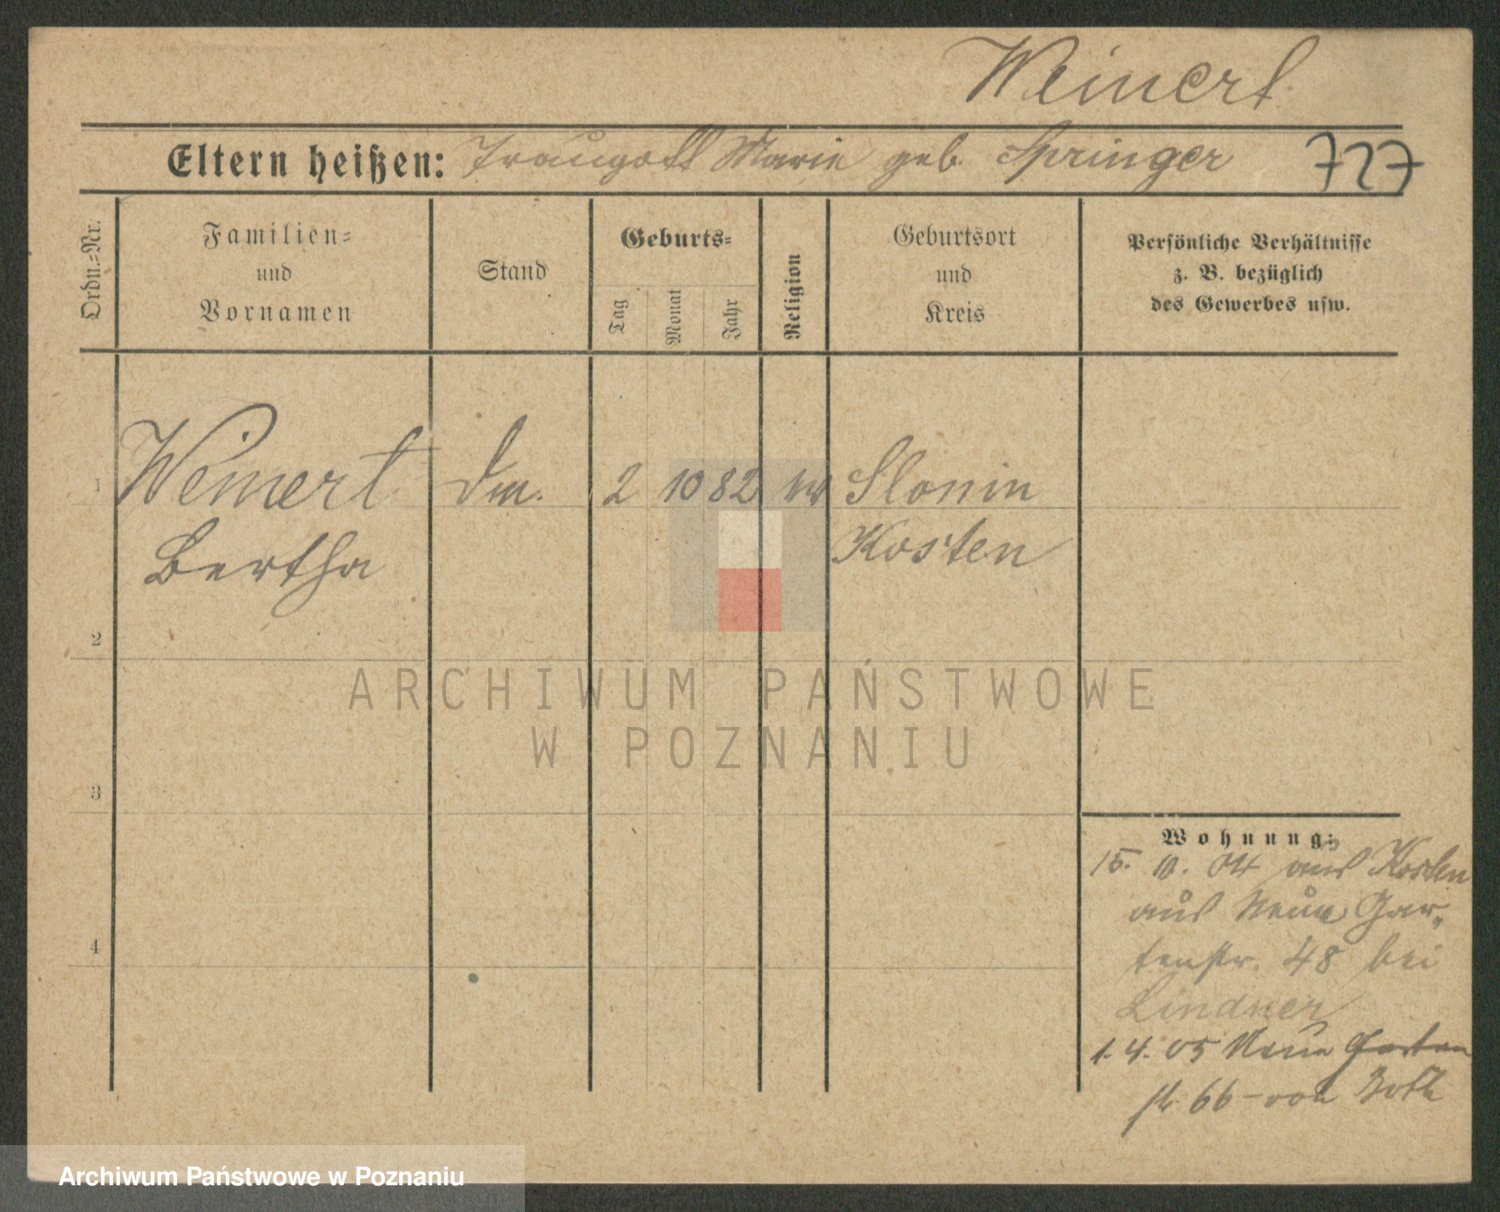 Weinert
Eltern heißen: Traugott Marie geb. Springer 727
Ordn.-Nr.
Familien-
und
Vornamen
Stand
Geburts-
Tag
Monat
Jahr
Religion
Geburtsort
und
Kreis
Persönliche Verhältnisse
z. B. bezüglich
des Gewerbes usw.
1 Weinert 2 10 82 Slonin
Bertha Kosten
2
3
4
Wohnung:
15. 10. 04 aus Kosten
Neue Gar-
tenstr. 48 bei
Lindner
1. 4. 05 Neue Garten
str 66
ARCHIWUM PAŃSTWOWE
W POZNANIU
Archiwum Państwowe w Poznaniu